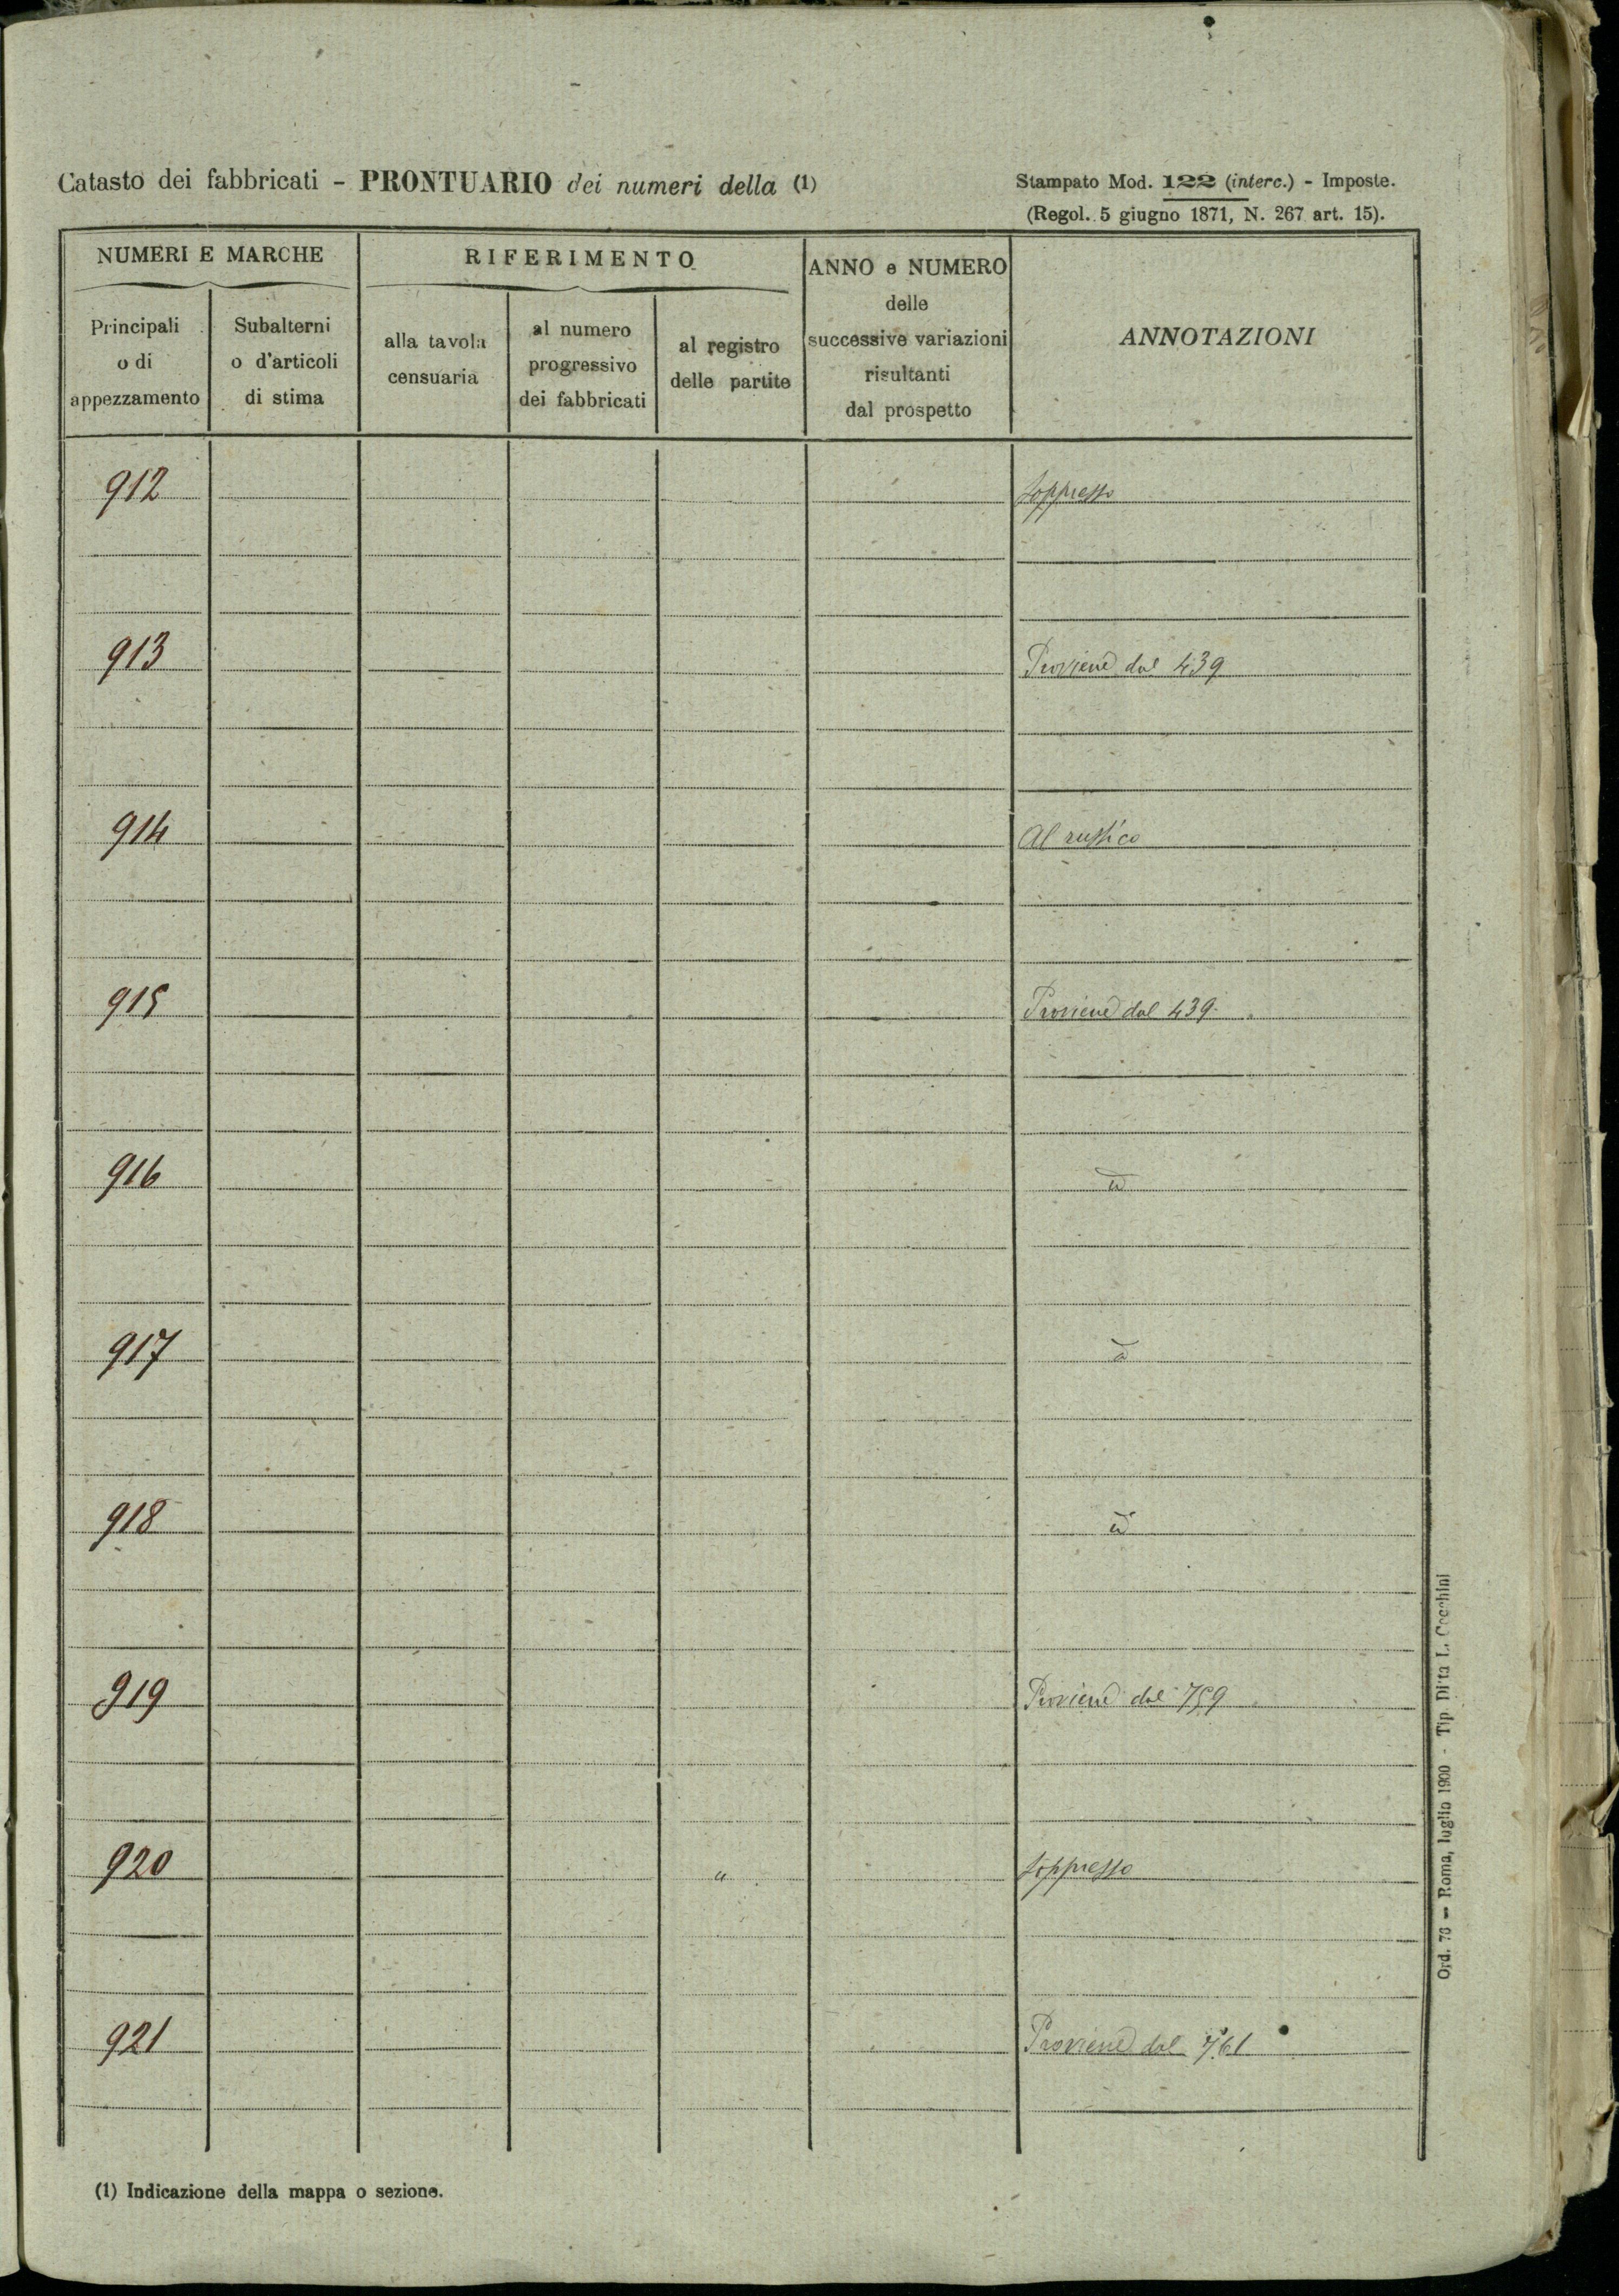 Catasto dei fabbricati - PRONTUARIO dei numeri della (1)
Stampato Mod. 122 (interc.) - Imposte.
(Regol. 5 giugno 1871, N. 267 art. 15).
NUMERI E MARCHE
RIFERIMENTO
ANNO e NUMERO
delle
successive variazioni
risultanti
dal prospetto
ANNOTAZIONI
Principali
o di
appezzamento
Subalterni
o d'articoli
di stima
alla tavola
censuaria
al numero
progressivo
dei fabbricati
al registro
delle partite
912 soppresso
913 Proviene dal 439
914 Al rustico
915 Proviene dal 439
916 id
917 id
918 id
919 Proviene dal 759
920 " soppresso
921 Proviene dal 761
(1) Indicazione della mappa o sezione.
Ord. 76 - Roma, luglio 1900 - Tip. Ditta L. Cecchini